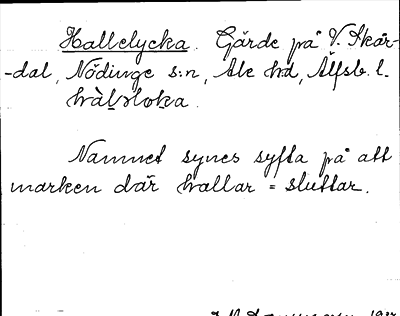 Hallelycka. Gärde på V. Skår-
-dal, Nödinge s:n, Ale hd, Älfsb. l.
Namnet synes syfta på att
marken där hallar = sluttar.